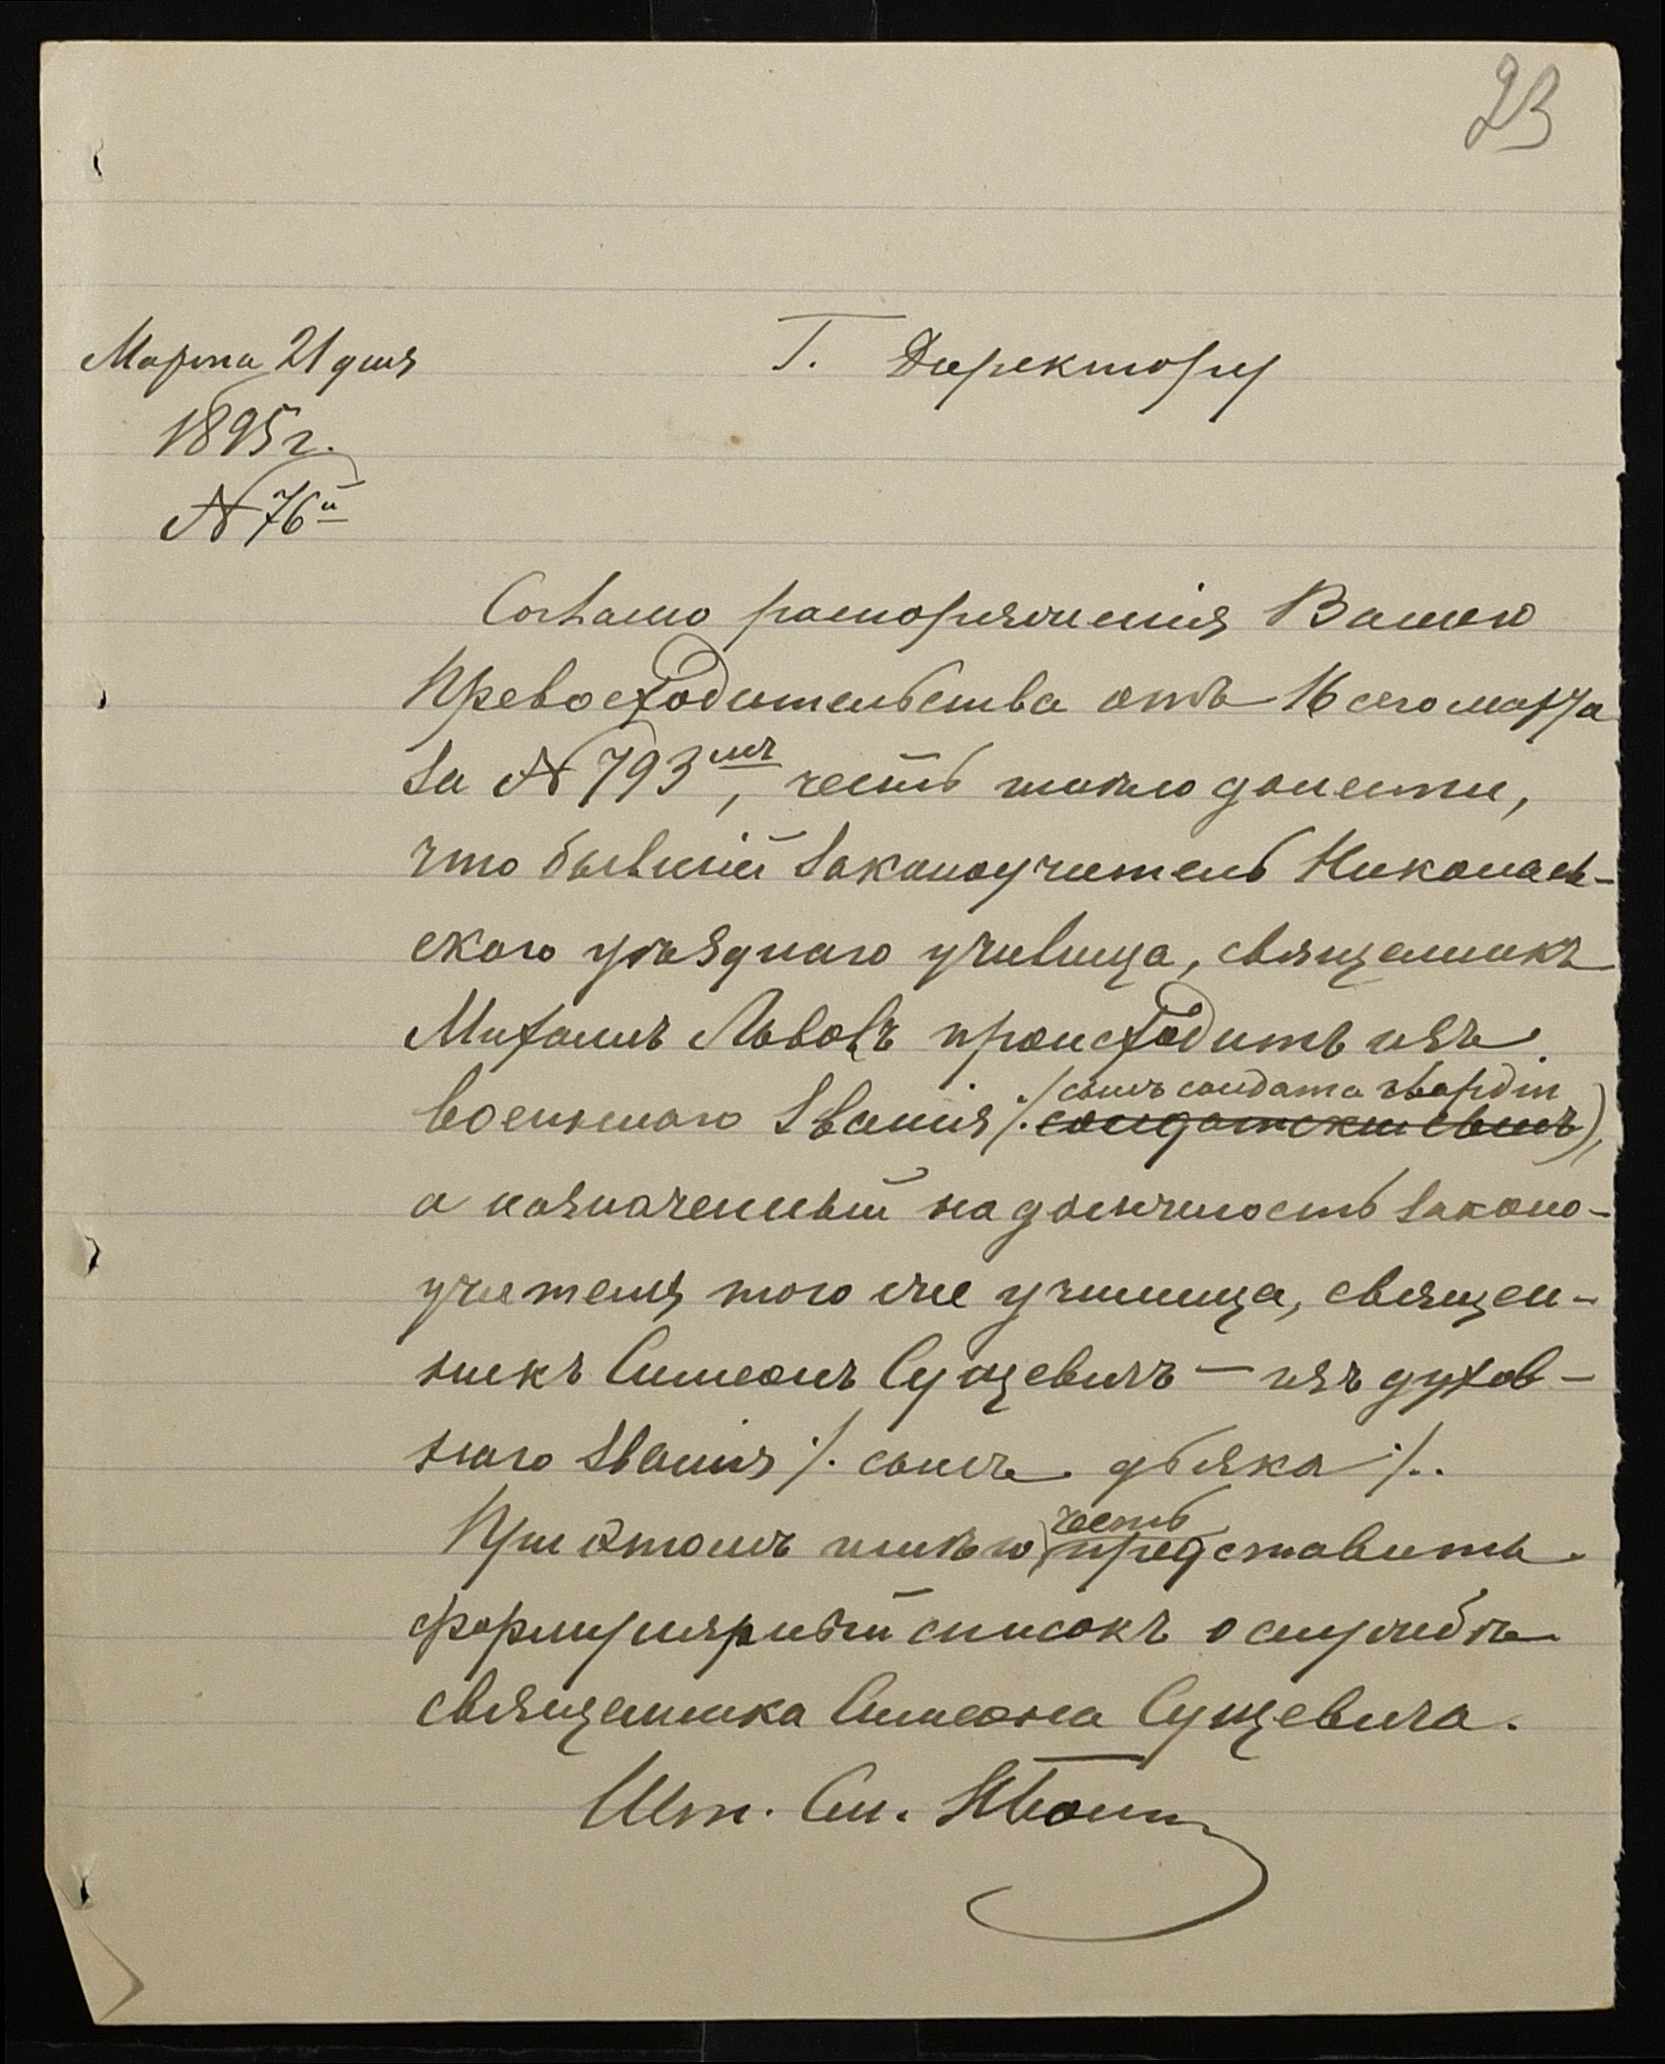 23
Марта 21 дня
1895 г.
№ 76й
Г. Директору
Согласно распоряженія Вашего
Превосходительства отъ 16 сего марта
за № 793мъ, честь имѣю донести,
что бывшій законоучитель Николаев-
скаго уѣзднаго училища, священникъ
Михаилъ Львовъ происходитъ изъ
сынъ солдата гвардіи
военнаго званія /: солдатскій сынъ),
а назначенный на должность законо-
учителя того же училища, священ-
никъ Симеонъ Сущевичъ – изъ духов-
наго званія /: сынъ дьяка :/.
честь
При этомъ имѣю представить
формулярный списокъ о службѣ
священника Симеона Сущевича.
Шт. См.